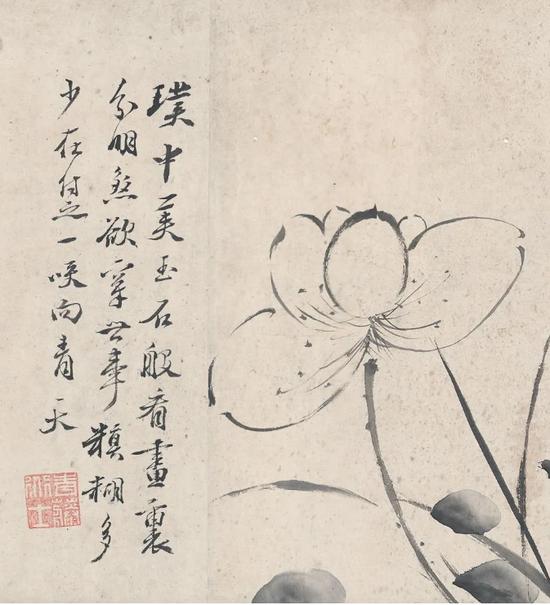 璞中美玉石般看畫裏
分明煞欲穿世事糢糊多
少在付之一咲向青天